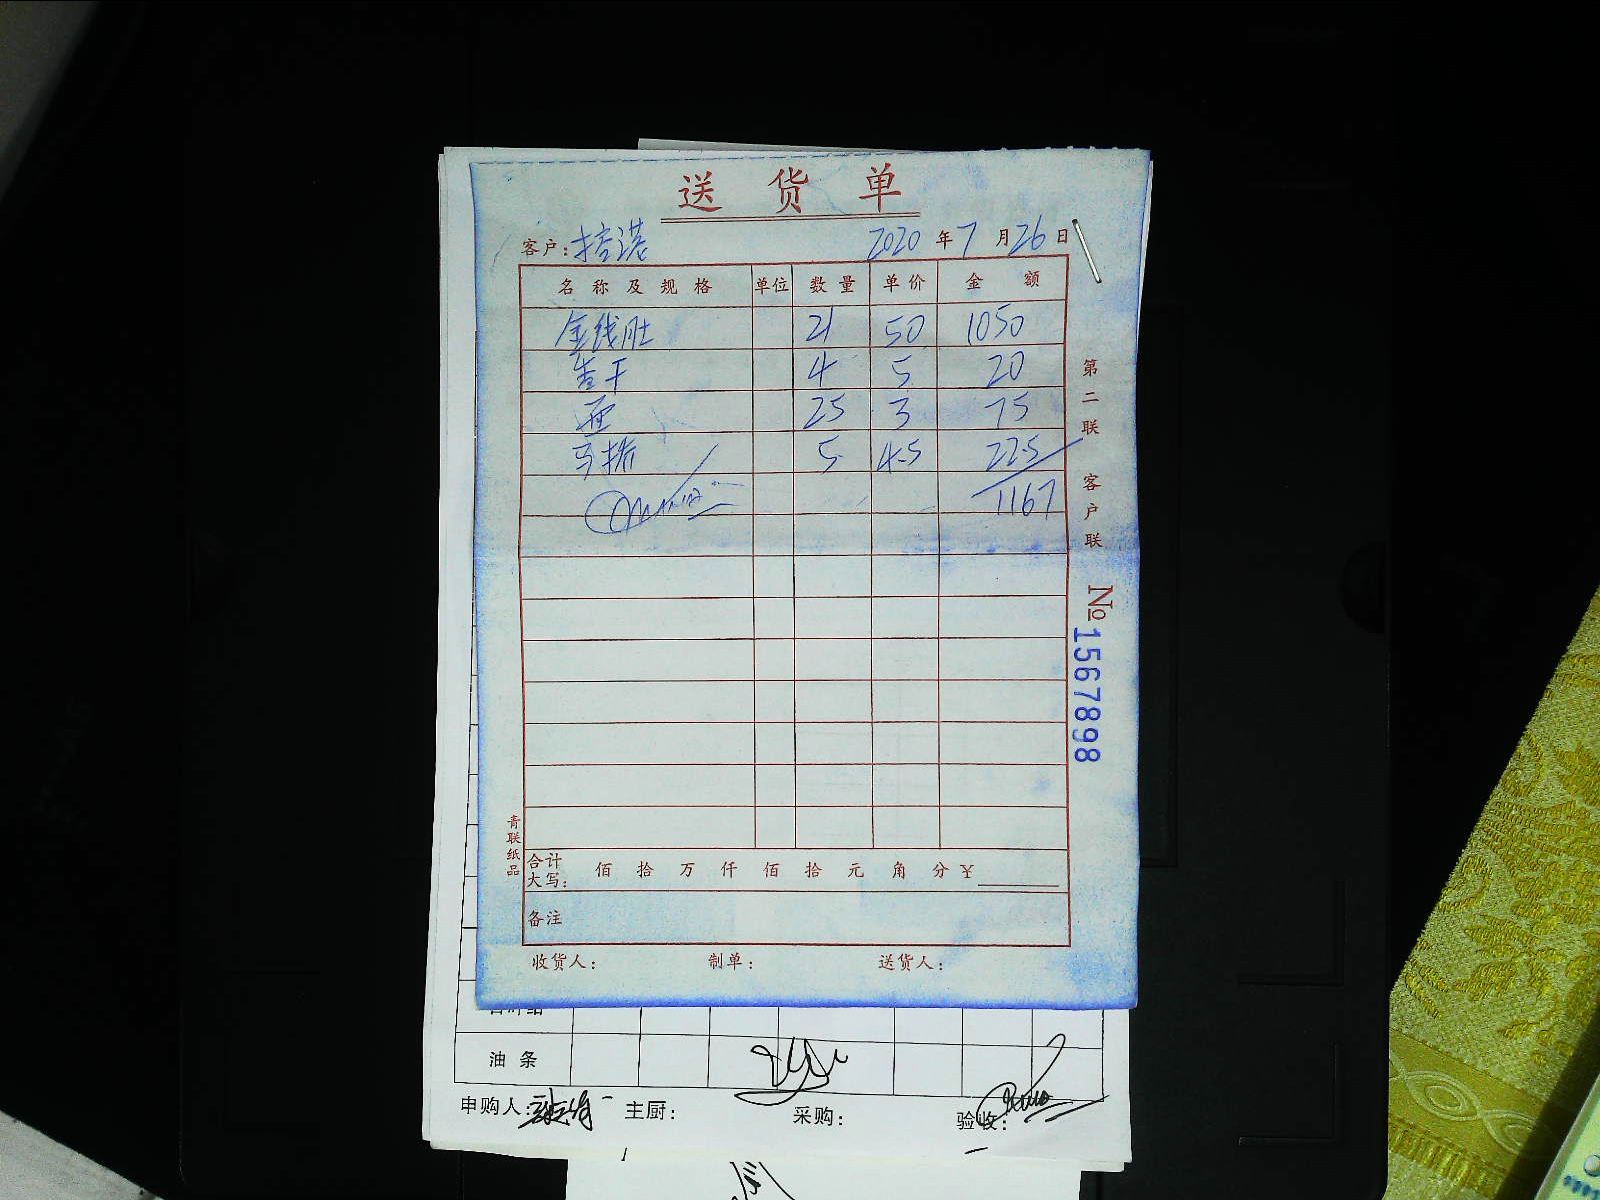 送 货 单
客户： 2020 年 7 月 26 日
名 称 及 规 格 单位 数 量 单 价 金 额
金钱肚 21 50 1050
干 4 5 20
25 3 75
5 4.5 22.5
1167
第二联 客户联
№ 1567898
青联纸品
合计大写： 佰 拾 万 仟 佰 拾 元 角 分 ¥
备注
收货人： 制单： 送货人：
油 条
申购人： 主厨： 采购： 验收：